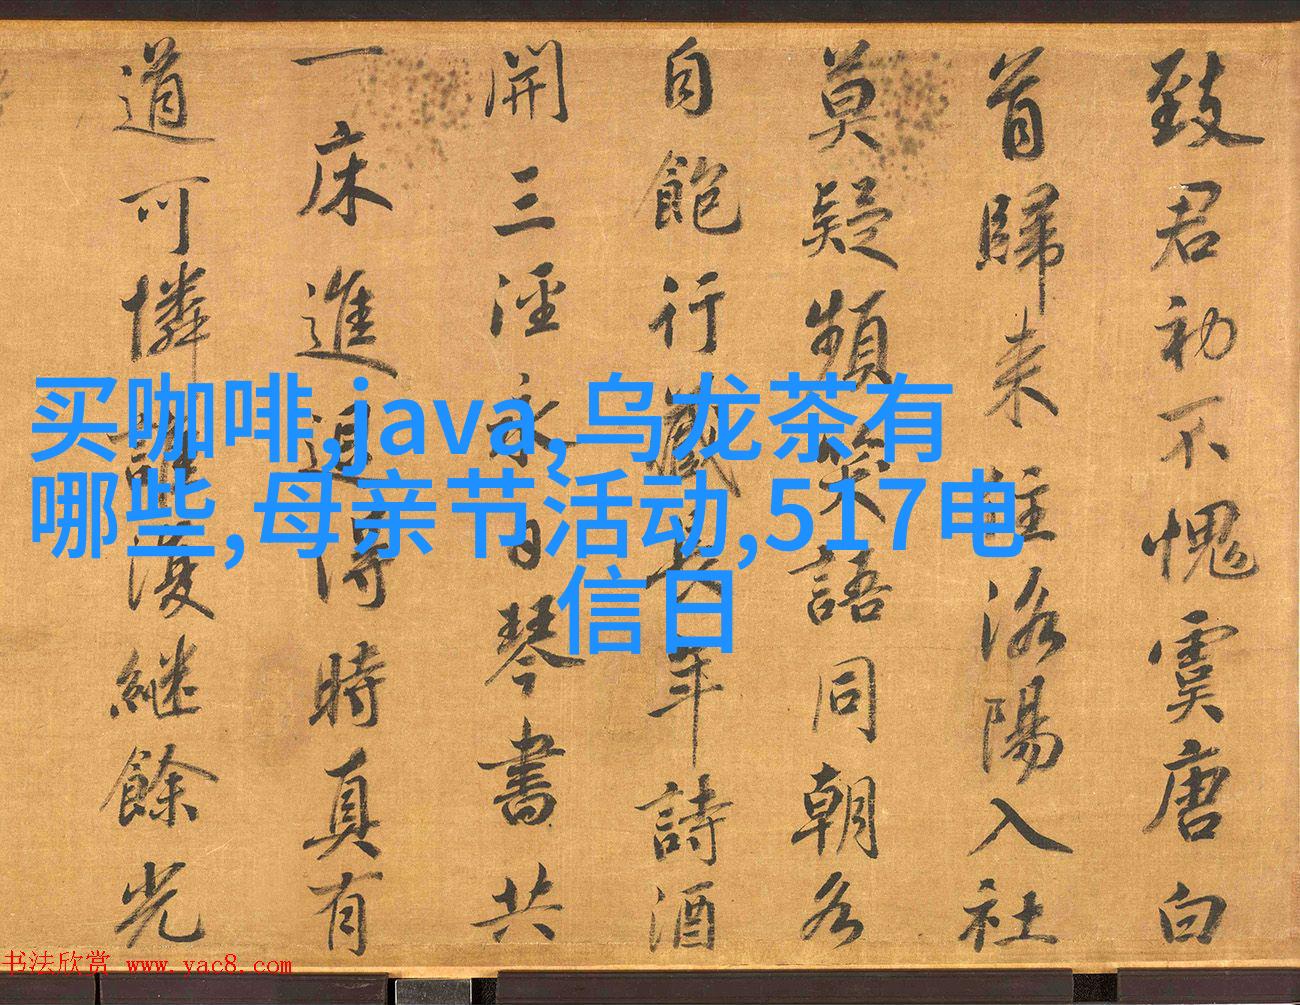 致君初不愧虞唐白
首歸来住洛陽入社
莫疑頻笑語同朝各
自飽行藏長年詩酒
開三涇永日琴書共
一床進退得時真有
道可憐誰復継餘光
买咖啡,java,乌龙茶有
哪些,母亲节活动,517电
信日
书法欣赏 www.yac8.com